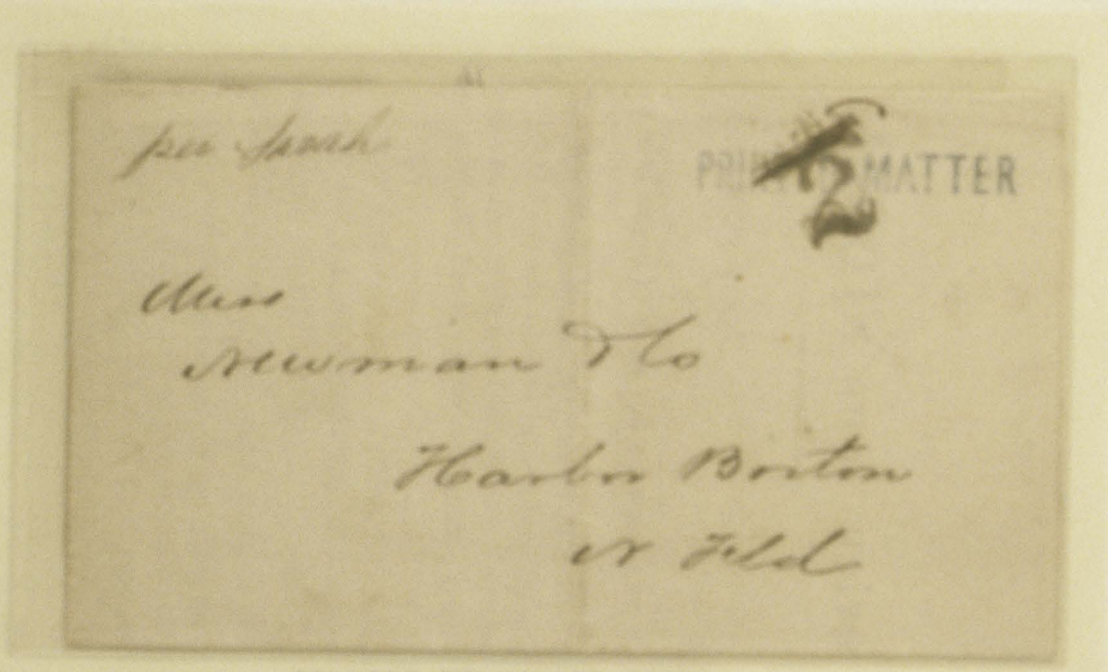 per Sarah
PRINTED MATTER
2
Mess
Newman & Co
Harbor Briton
N Fld